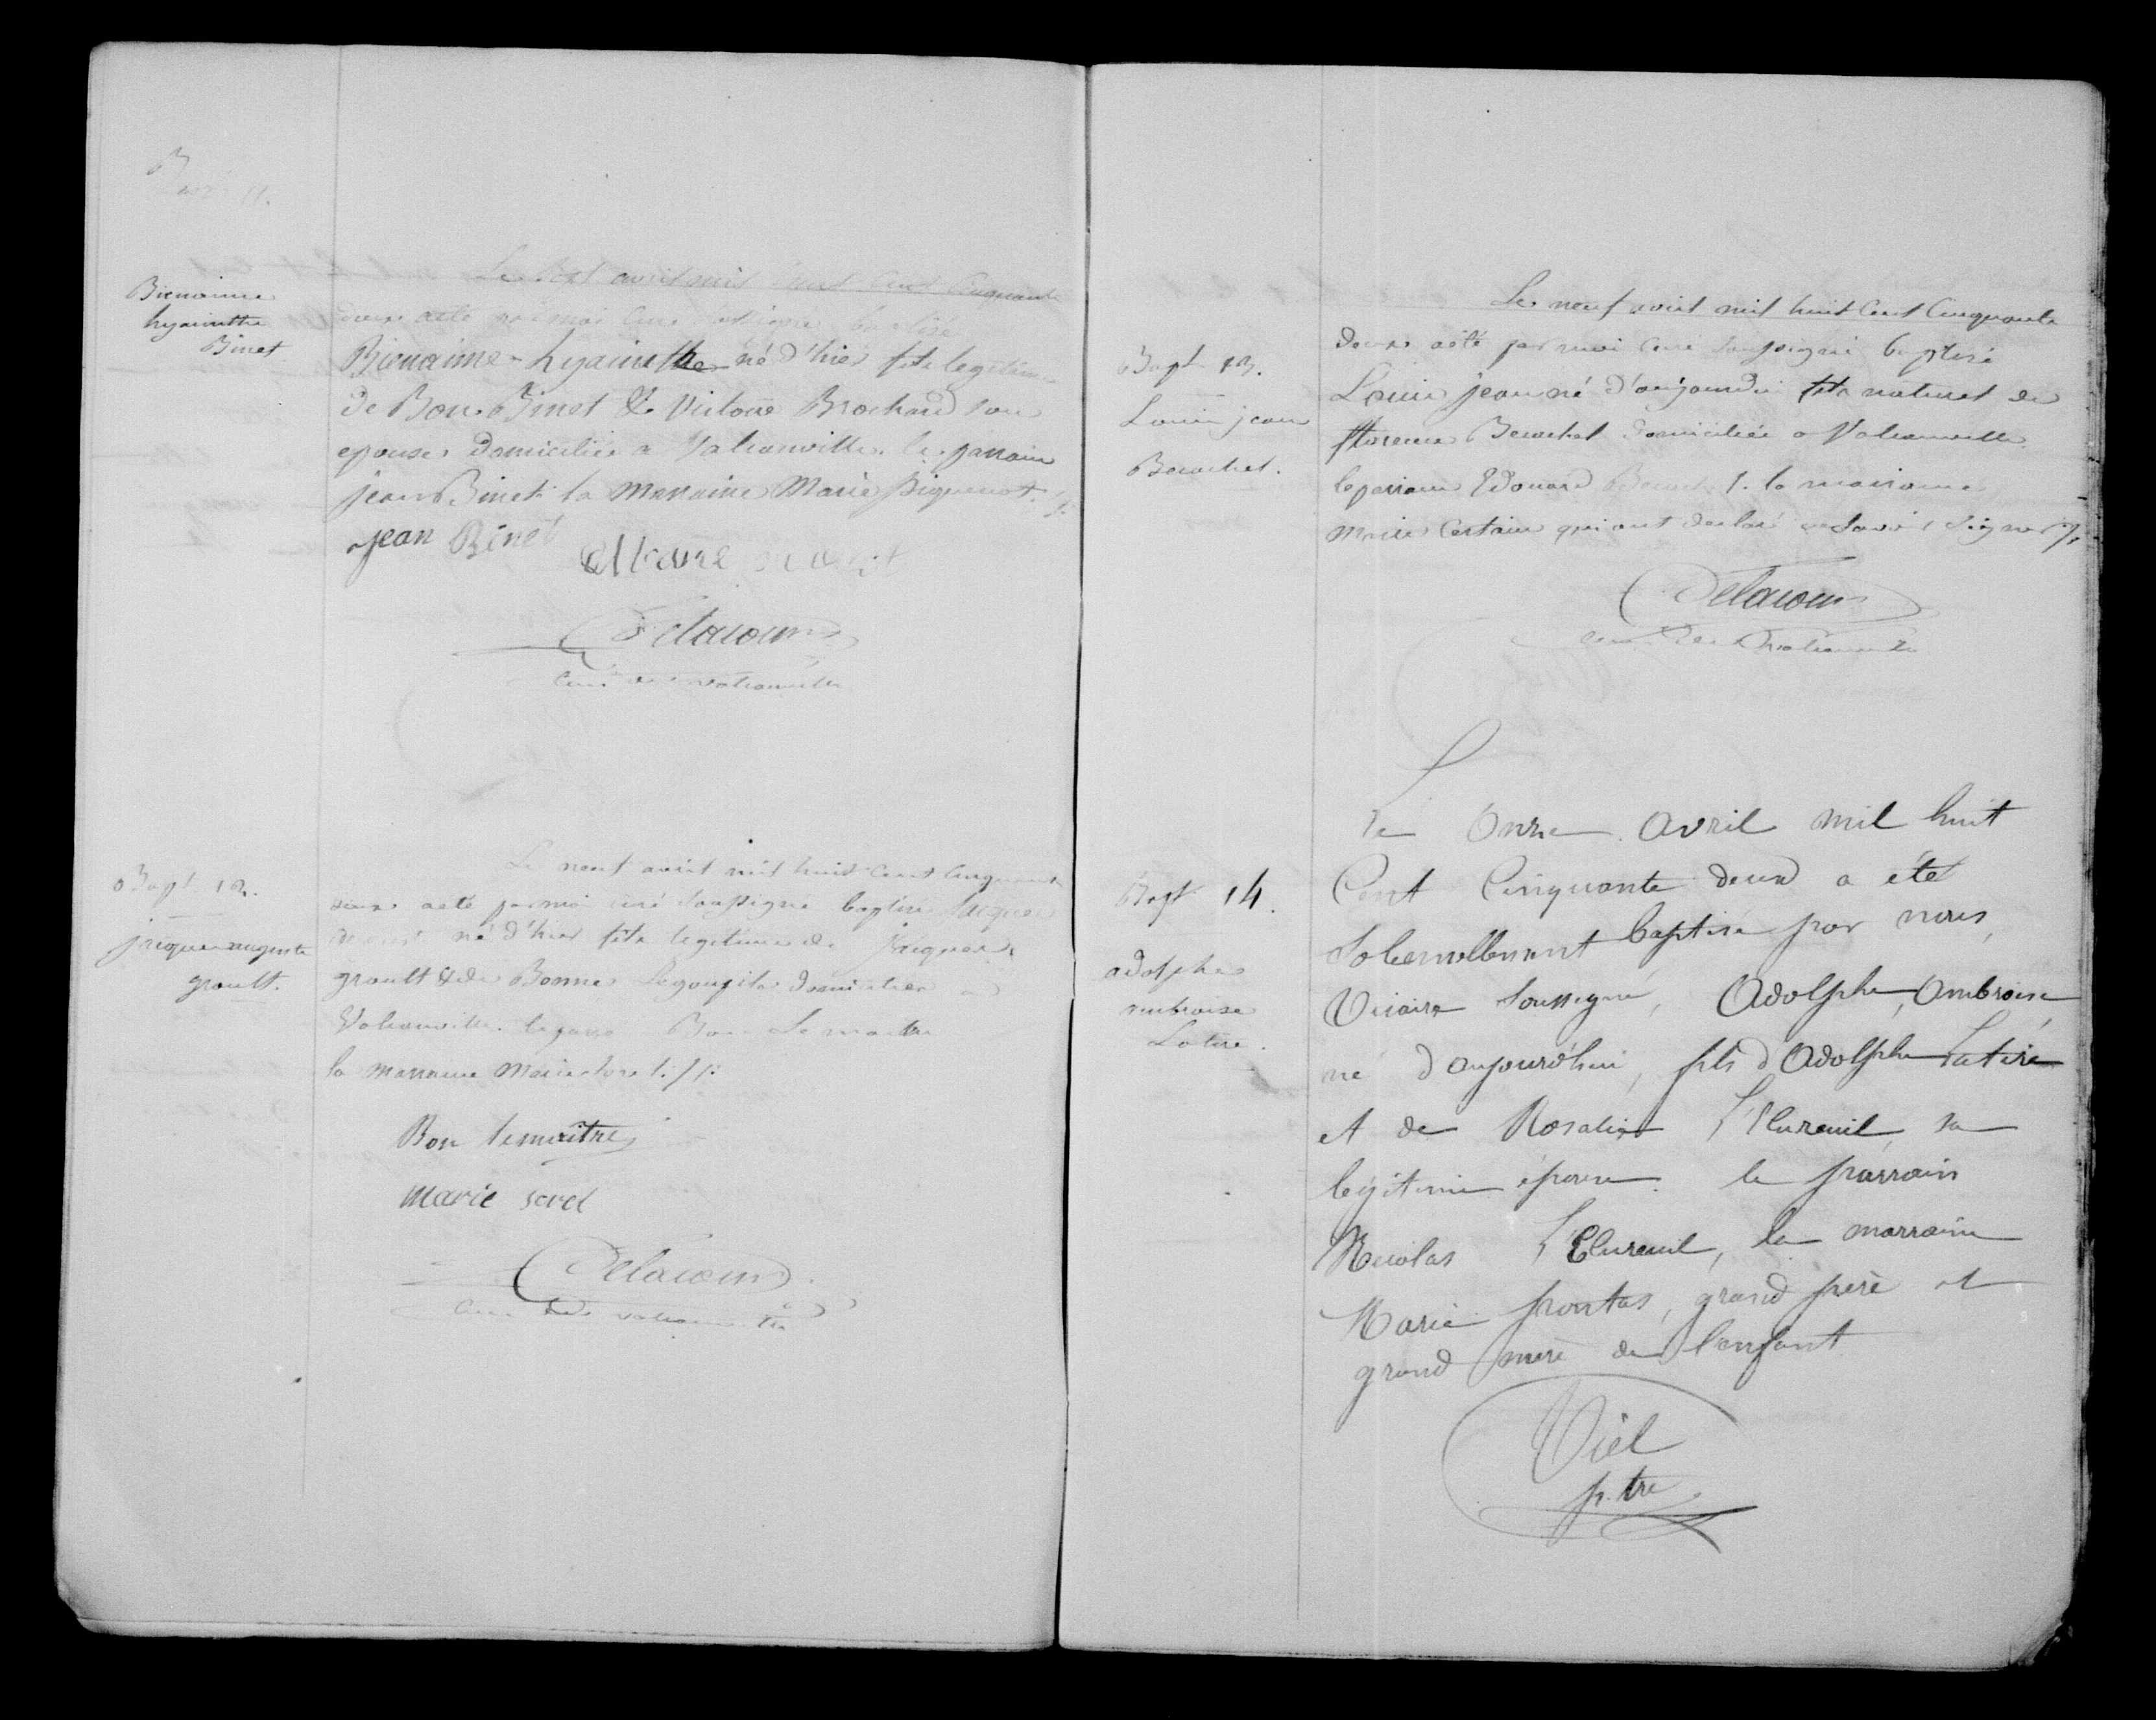 Bapt. 11.
Bienaime
hyacinthe
Binet
Le sept avril mil huit cent Cinquante
deux a été par moi Curé soussigné baptisé
Bienaime-hyacinthe né d'hier fils legitime
de Bon Binet & Victoire Brochard son
epouse domiciliés a Valcanville. le parrain
jean Binet. la marraine Marie piquenot. /.
jean Binet
Delacour
curé de valcanville
Bapt. 12.
jacques auguste
groult.
Le neuf avril mil huit cent Cinquante
deux a été par moi curé soussigné baptisé Jacques
né d'hier fils legitime de jacques
groult & de Bonne Legoupil domiciliés a
Valcanville. le parrain Bon Lemaitre
la marraine Marie sorel. /.
Bon lemaitre
Marie sorel
Delacour
curé de valcanville
Bapt. 13.
Louis jean
Le neuf avril mil huit Cent Cinquante
deux a été par moi curé soussigné baptisé
Louis jean né d'aujourdui fils naturel de
florence domiciliée a Valcanville
le parrain Edouard la marraine
Marie Certain qui ont declaré ne savoir signer /.
Delacour
curé de Valcanville
Bapt 14.
adolphe
ambroise
Latire.
Le Onze Avril mil huit
Cent Cinquante deux a été
Solennellement baptisé par nous,
Vicaire Soussigné, Adolphe, Ambroise,
né d'aujourd'hui, fils d'Adolphe Latire
et de Rosalie L'Ecureuil, sa
legitime épouse. le parrain
Nicolas L'Ecureuil, la marraine
Marie frontas, grand père et
grand mere de l'enfant
Viel
p.tre